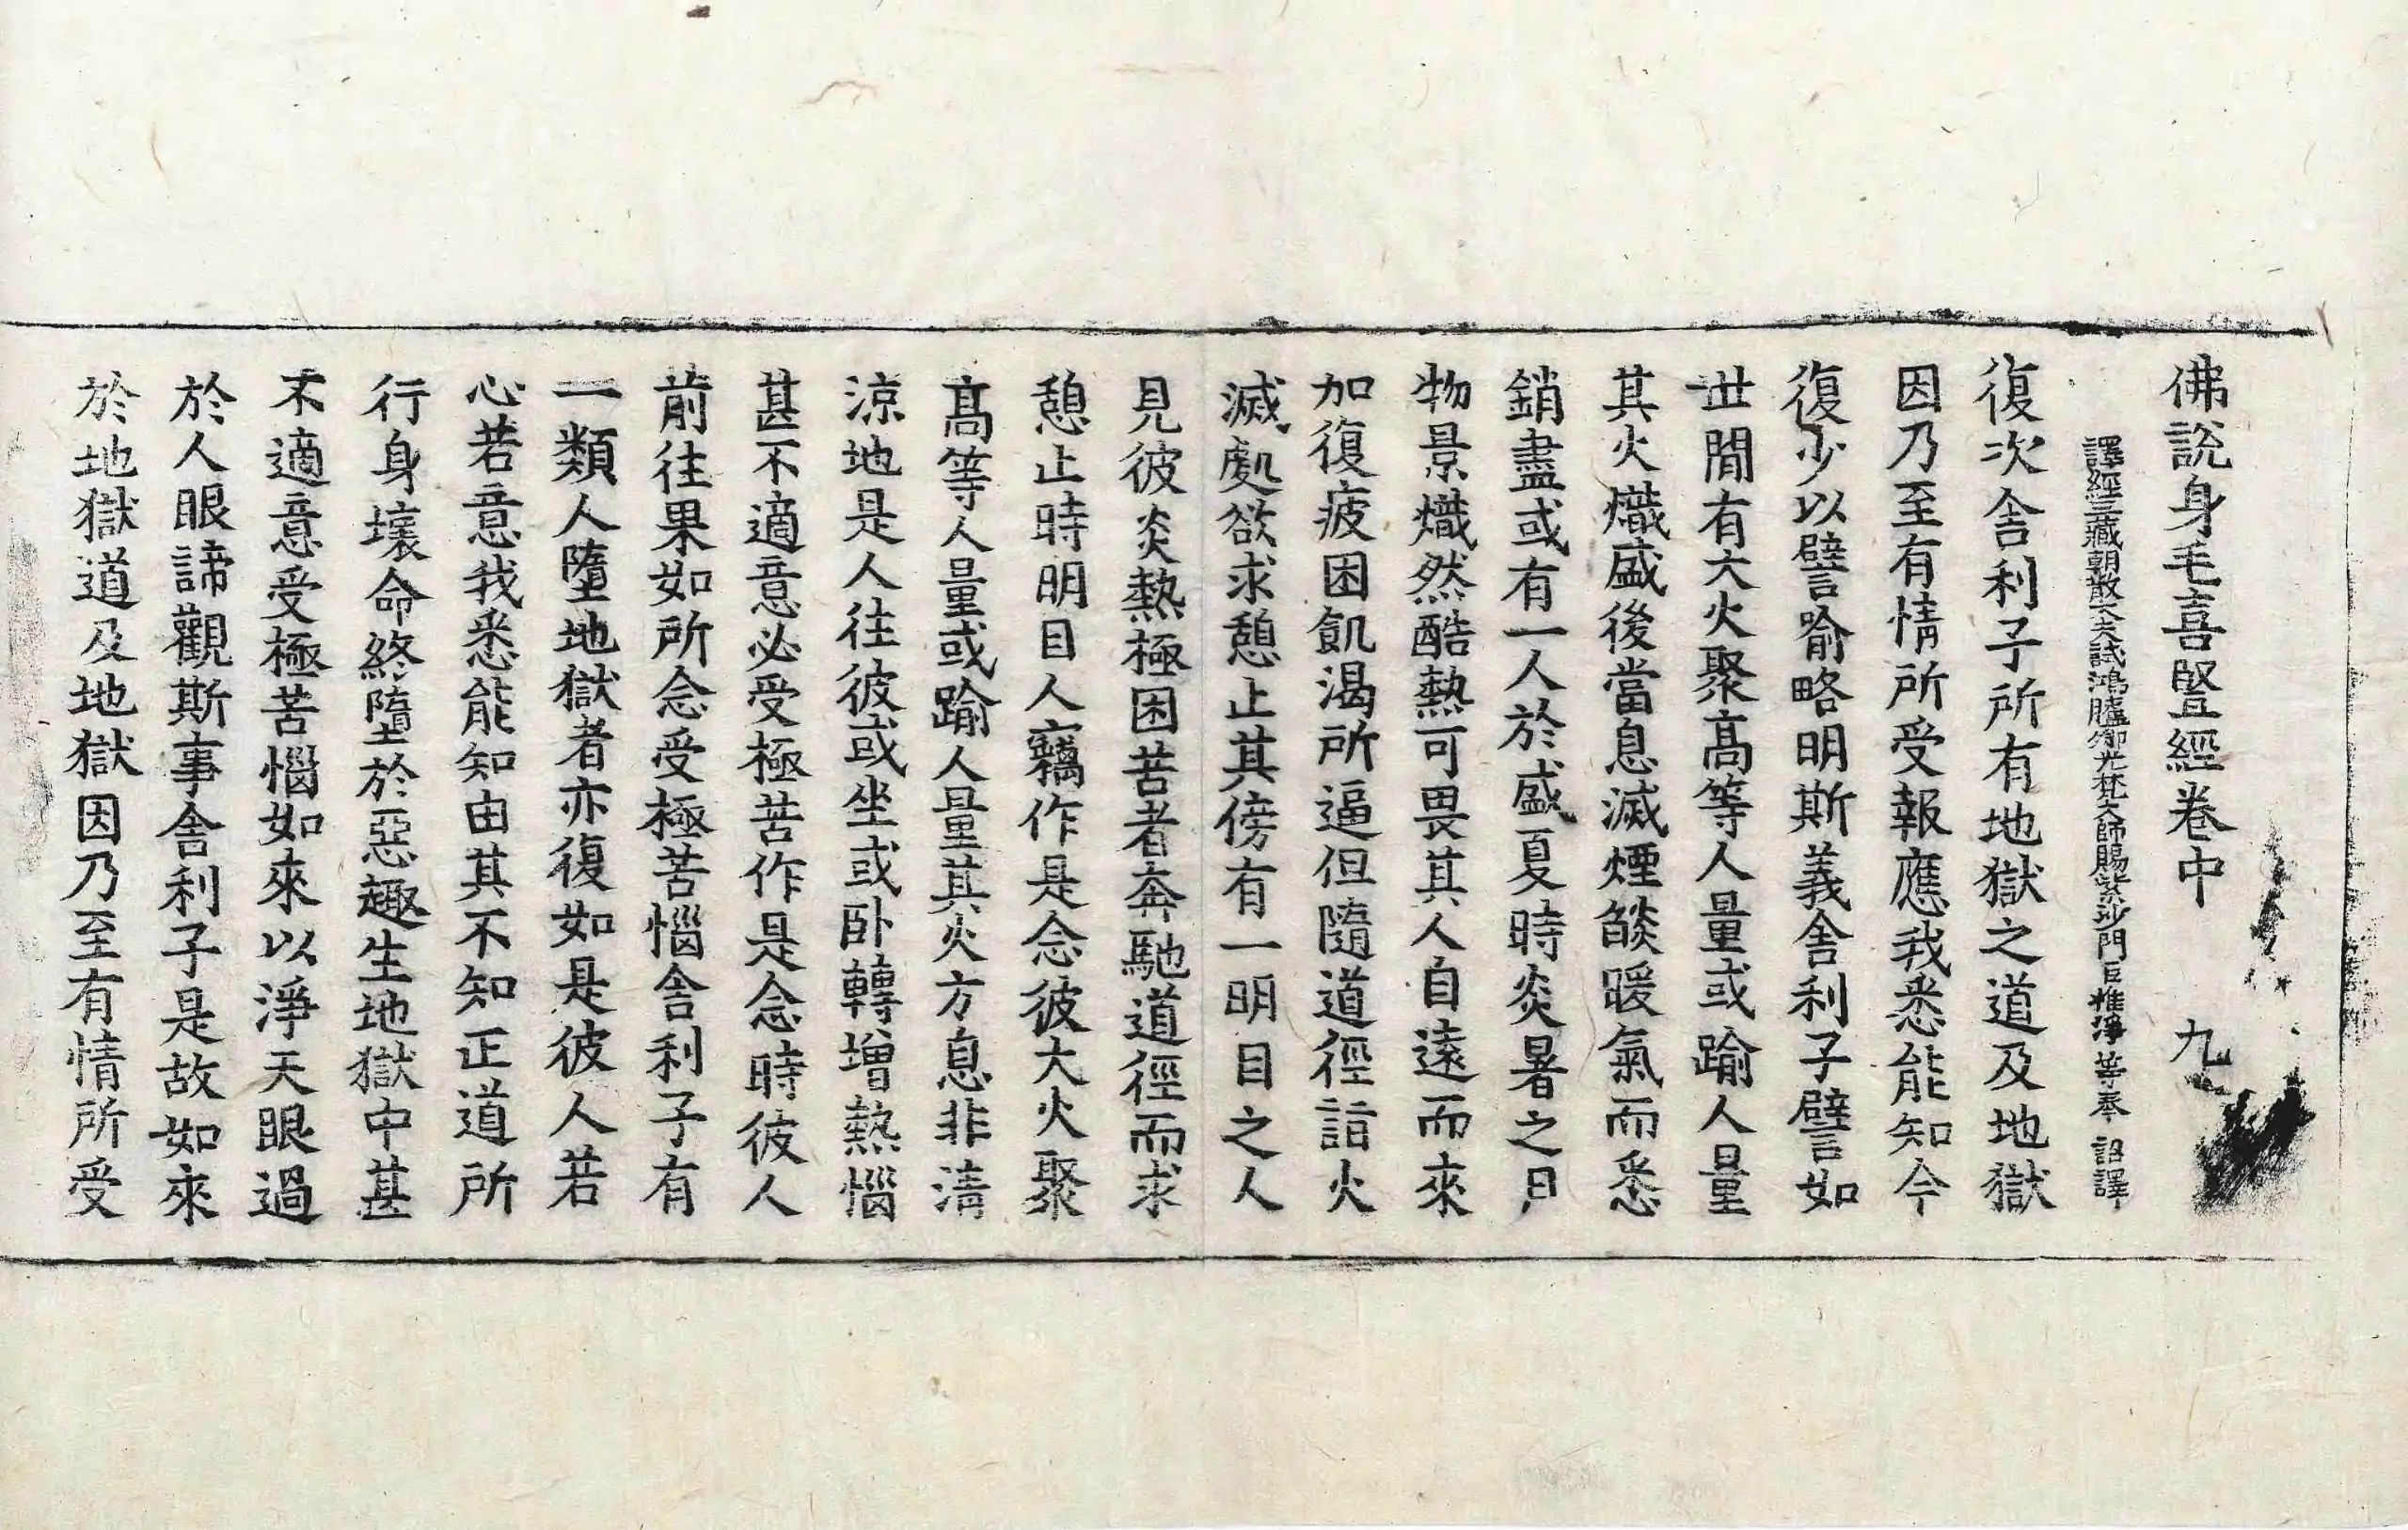 佛說身毛喜豎經卷中 九
譯經三藏朝散大夫試鴻臚卿光梵大師賜紫沙門臣惟淨等奉 詔譯
復次舍利子所有地獄之道及地獄
因乃至有情所受報應我悉能知今
復少以譬喻略明斯義舍利子譬如
世間有大火聚高等人量或踰人量
其火熾盛後當息滅煙燄暖氣而悉
銷盡或有一人於盛夏時炎暑之月
物景熾然酷熱可畏其人自遠而來
加復疲困飢渴所逼但隨道徑詣火
滅處欲求憩止其傍有一明目之人
見彼炎熱極困苦者奔馳道徑而求
憩止時明目人竊作是念彼大火聚
高等人量或踰人量其火方息非清
涼地是人往彼或坐或臥轉增熱惱
甚不適意必受極苦作是念時彼人
前往果如所念受極苦惱舍利子有
一類人墮地獄者亦復如是彼人若
心若意我悉能知由其不知正道所
行身壞命終墮於惡趣生地獄中甚
不適意受極苦惱如來以淨天眼過
於人眼諦觀斯事舍利子是故如來
於地獄道及地獄因乃至有情所受